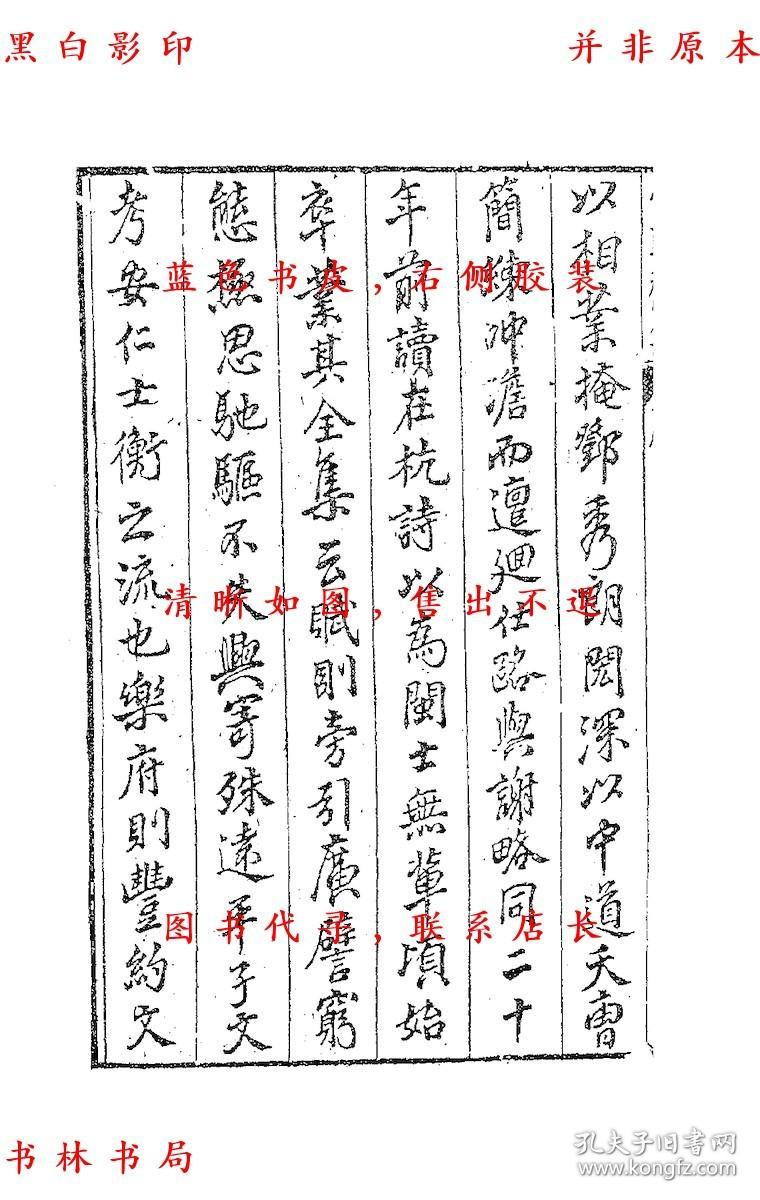 黑白影印
并非原本
以相業掩鄧秀朗閎深以中道夭
簡練冲澹而邅廻仕路與謝略同二十
年前讀在杭詩以為閩士無輩頃始
卒業其全集云賦則旁引廣譬窮
態極思馳驅不失興寄殊遠平子文
考安仁士衡之流也樂府則豐約文
蓝色书皮，右侧胶装
清晰如图，售出不退
图书代寻，联系店长
书林书局
孔夫子旧书网
www.kongfz.com